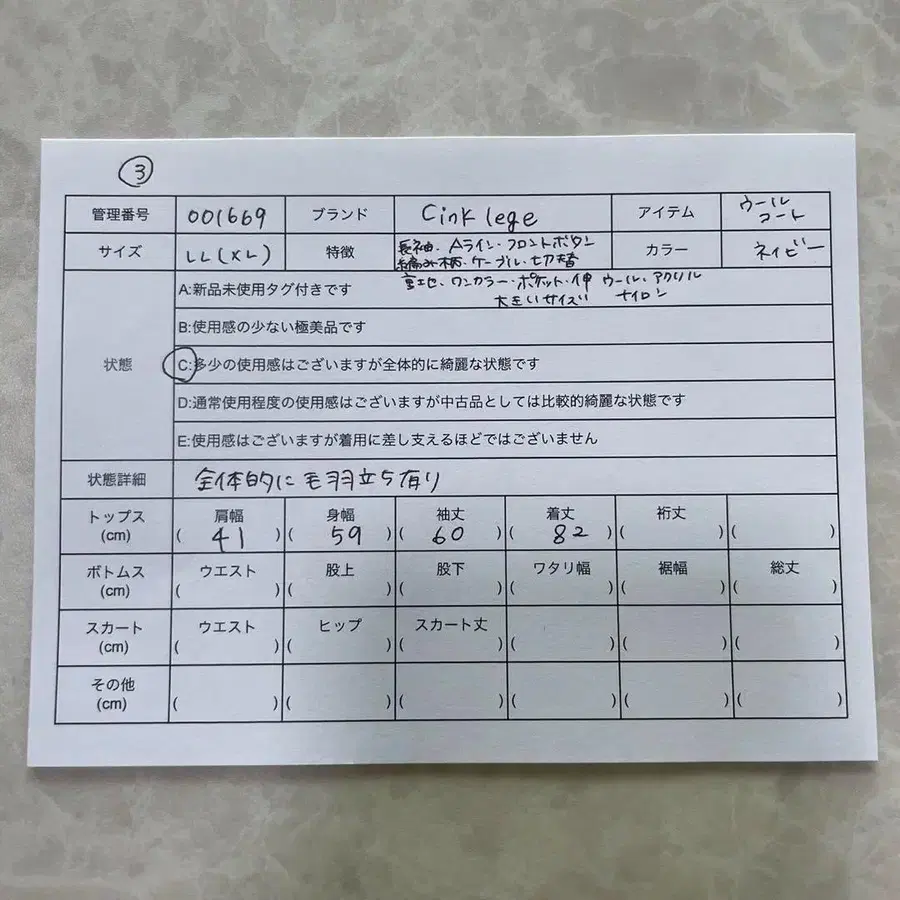 ③
管理番号 001669 ブランド Cink lege アイテム ウール コート
サイズ LL(XL) 特徴 長袖・Aライン・フロントボタン カラー ネイビー
編み柄・ケーブル・切替
A:新品未使用タグ付きです
・ワンカラー・ポケット・伸 ウール・アクリル
大きいサイズ ナイロン
B:使用感の少ない極美品です
状態 C:多少の使用感はございますが全体的に綺麗な状態です
D:通常使用程度の使用感はございますが中古品としては比較的綺麗な状態です
E:使用感はございますが着用に差し支えるほどではございません
状態詳細 全体的に毛羽立ち有り
トップス 肩幅 身幅 袖丈 着丈 裄丈
(cm) ( 41 ) ( 59 ) ( 60 ) ( 82 ) ( ) ( )
ボトムス ウエスト 股上 股下 ワタリ幅 裾幅 総丈
(cm) ( ) ( ) ( ) ( ) ( ) ( )
スカート ウエスト ヒップ スカート丈
(cm) ( ) ( ) ( ) ( ) ( ) ( )
その他
(cm) ( ) ( ) ( ) ( ) ( ) ( )